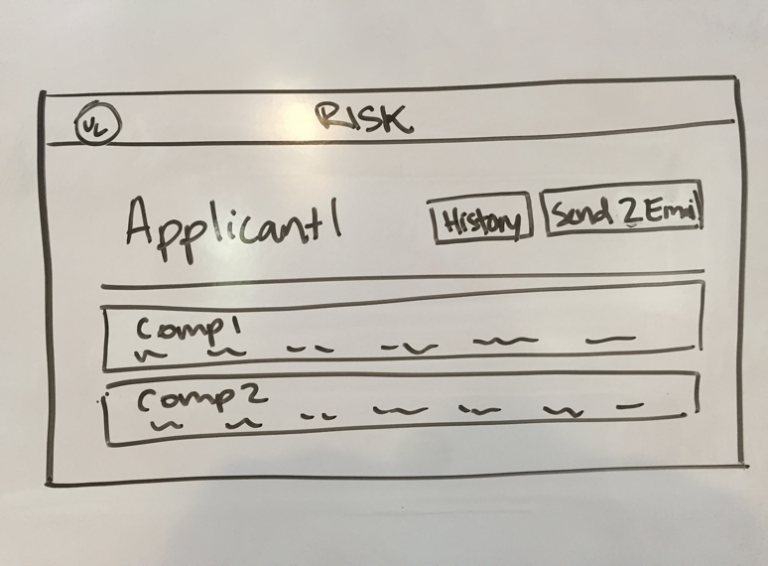 UL RISK
Applicant1 History Send 2 Emai
Comp1
Comp2